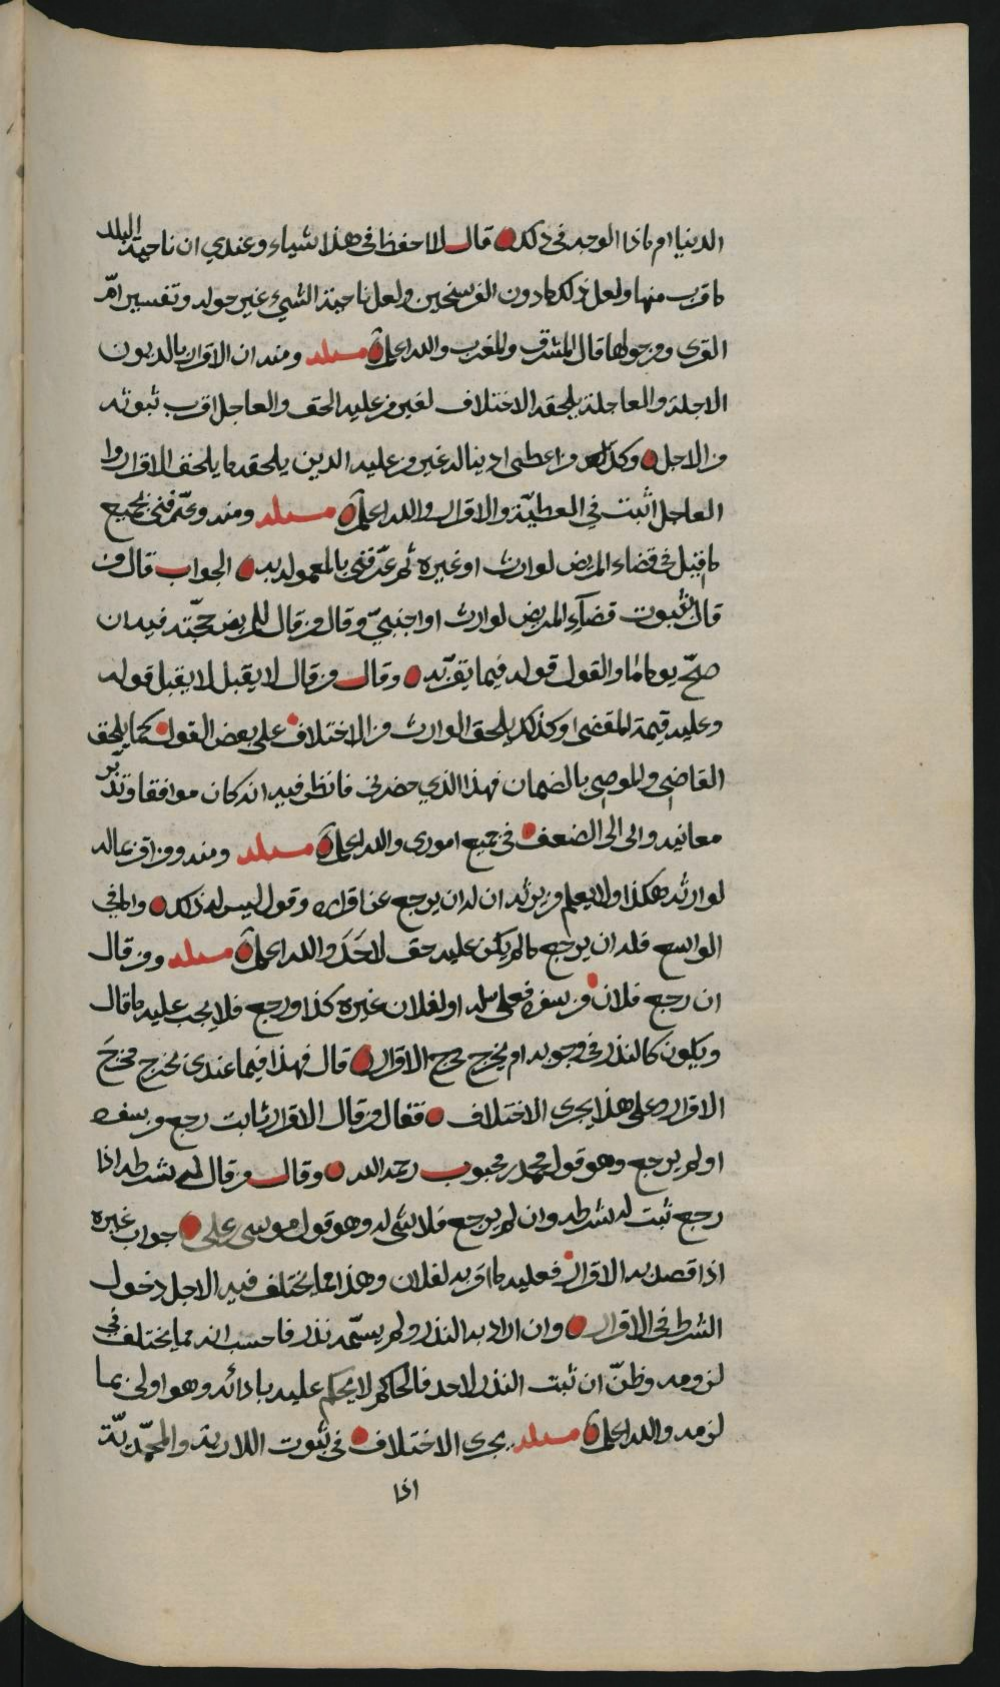 الدنيا او ماذا الوجه في ذلك قال لا احفظ في هذا شياء وعندي ان ناحية البلد
ما قرب منها ولعل ذلك ما دون الفرسخين ولعل ناحية الشيء غير حوله وتفسير امّ
القرى ومن حولها قال المشرق والمغرب والله اعلم مسئلة ومنه ان الاقرار بالديون
الاجلة والعاجلة يلحقه الاختلاف لغير من عليه الحق والعاجل اقرب ثبوته
من الاجل وكذلك من اعطى دينا له غير من عليه الدين يلحقه ما يلحق الاقرار وا
العاجل اثبت في العطيّة والاقرار والله اعلم مسئلة ومنه وعرّفني جميع
ما قيل في قضاء المريض لوارث او غيره ثم عرّفني بالمعمول به الجواب قال من
قال بثبوت قضآء المريض لوارث او اجنبيّ وقال من قال للمريض حجّته فيه ان
صحّ يوما ما والقول قوله فيما يقرّ به وقال من قال لا يقبل لا يقبل قوله
وعليه قيمة المقضى وكذلك يلحق الوارث من الاختلاف على بعض القول كما يلحق
القاضي والموصي بالضمان فهذا الذي حضرني فانظر فيه انه كان موافقا وتدبّر
معانيه واني الى الضعف في جميع اموري والله اعلم مسئلة ومنه ومن اقر بماله
لوارثه هكذا ولا يعلم من يرثه ان له ان يرجع عن اقراره وقول ليس له ذلك واما في
الواسع فله ان يرجع ما لم يكن عليه حق لاحَد والله اعلم مسئلة ومن قال
ان رجع فلان من سفره فعلي له او لفلان غيره كذا ورجع فلا يجب عليه ما قال
ويكون كالنذر في وجوبه ام يخرج مخرج الاقرار قال فهذا فيما عندي يخرج مخرَجَ
الاقرار وعلى هذا يجرى الاختلاف فقال من قال الاقرار ثابت رجع من سفره
او لم يرجع وهو قول محمد بن محبوب رحمه الله وقال من قال له شرطه اذا
رجع ثبت له شرطه وان لم يرجع فلا شيء له وهو قول موسى بن علي جواب غيره
اذا قصد به الاقرار فعليه ما اقر به لفلان وهذا مما يختلف فيه لاجل دخول
الشرط في الاقرار وان اراد به النذر ولم يسمّه نذر فاحسب انه مما يختلف في
لزومه وظنّ ان ثبت النذر لاحد فالحاكم لا يحكم عليه بادائه وهو اولى بما
لزمه والله اعلم مسئلة يجرى الاختلاف في ثبوت اللارية والمحمّديّة
اذا